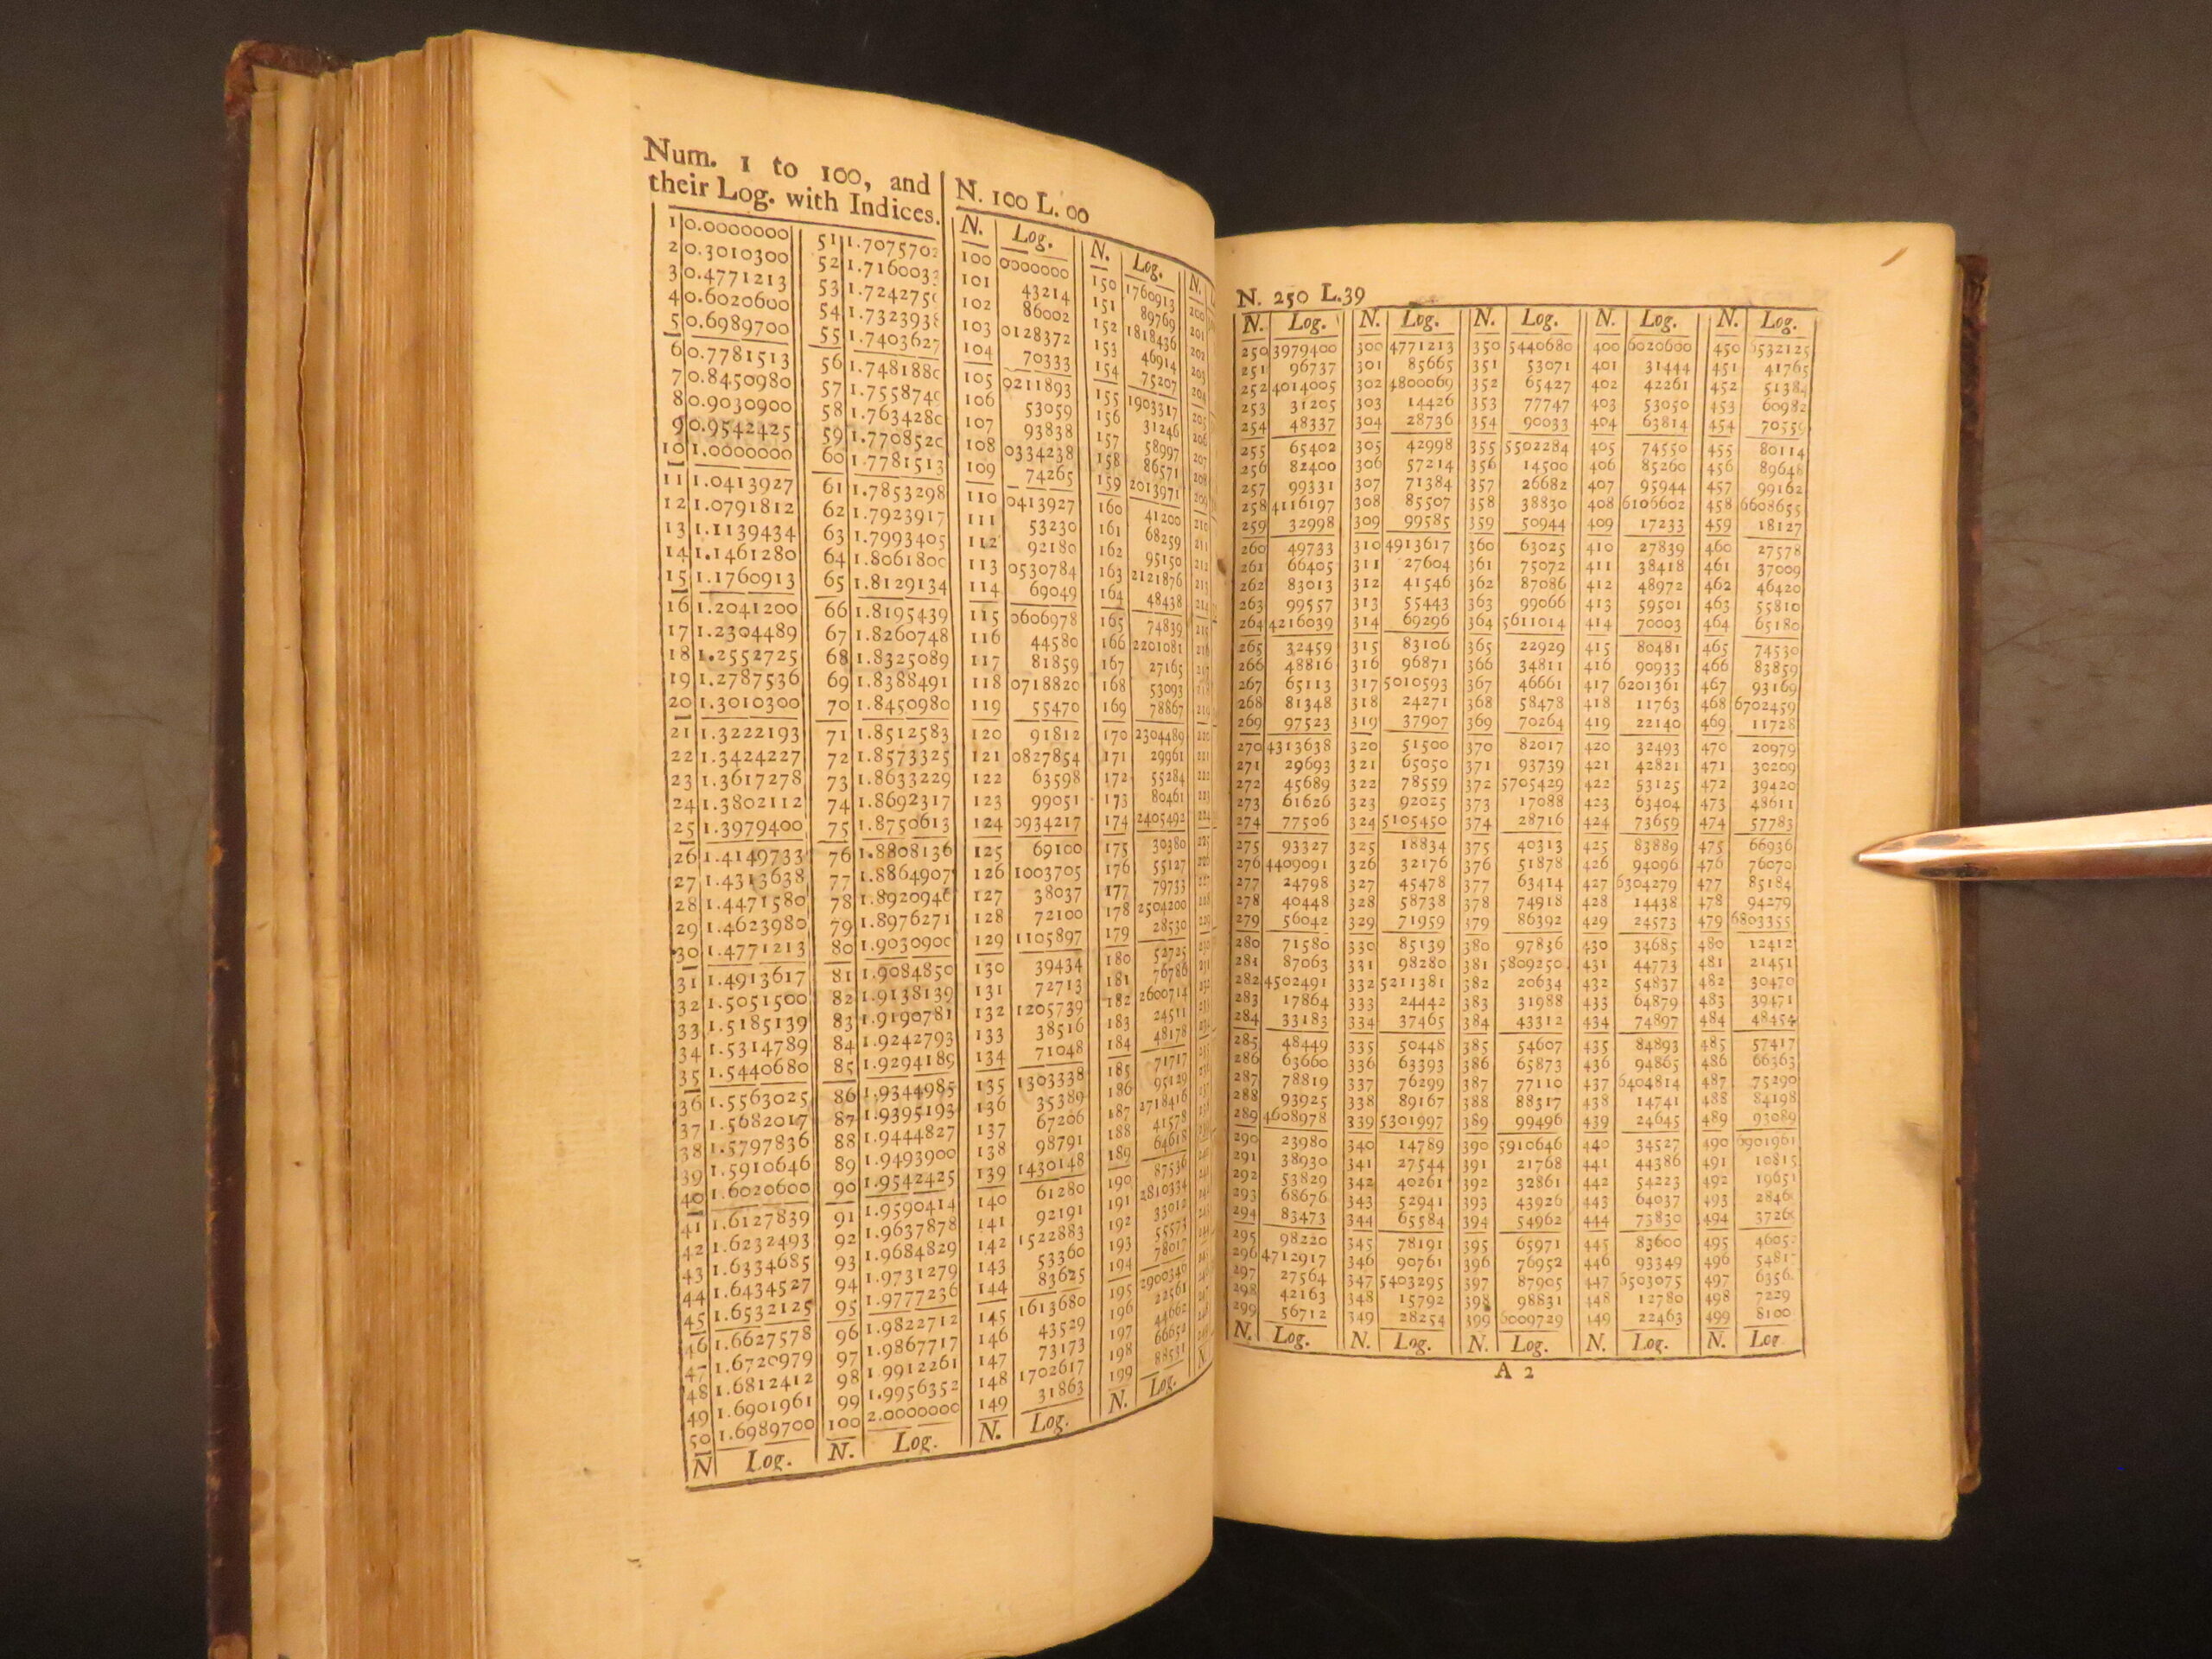 Num. 1 to 100, and their Log. with Indices.
N. 100 L. 00
N. Log. N. Log. N.
1 0.0000000 51 1.707570 100 0000000 150 1760913 200
2 0.3010300 52 1.716003 101 43214 151 89769 201
3 0.4771213 53 1.724275 102 86002 152 1818436 202
4 0.6020600 54 1.732393 103 0128372 153 46914 203
5 0.6989700 55 1.7403627 104 70333 154 75207 204
6 0.7781513 56 1.748188 105 0211893 155 1903317 205
7 0.8450980 57 1.755874 106 53059 156 31246 206
8 0.9030900 58 1.763428 107 93838 157 58997 207
9 0.9542425 59 1.770852 108 0334238 158 86571 208
10 1.0000000 60 1.7781513 109 74265 159 2013971 209
11 1.0413927 61 1.7853298 110 0413927 160 41200 210
12 1.0791812 62 1.7923917 111 53230 161 68259 211
13 1.1139434 63 1.7993405 112 92180 162 95150 212
14 1.1461280 64 1.806180 113 0530784 163 2121876 213
15 1.1760913 65 1.8129134 114 69049 164 48438 214
16 1.2041200 66 1.8195439 115 0606978 165 74839 215
17 1.2304489 67 1.8260748 116 44580 166 2201081 216
18 1.2552725 68 1.8325089 117 81859 167 27165 217
19 1.2787536 69 1.8388491 118 0718820 168 53093
20 1.3010300 70 1.8450980 119 55470 169 78867 219
21 1.3222193 71 1.8512583 120 91812 170 2304489 220
22 1.3424227 72 1.8573325 121 0827854 171 29961 221
23 1.3617278 73 1.8633229 122 63598 172 55284 222
24 1.3802112 74 1.8692317 123 99051 173 80461 223
25 1.3979400 75 1.8750613 124 0934217 174 2405492 224
26 1.4149733 76 1.8808136 125 69100 175 30380 225
27 1.4313638 77 1.8864907 126 1003705 176 55127 226
28 1.4471580 78 1.8920946 127 38037 177 79733 227
29 1.4623980 79 1.8976271 128 72100 178 2504200 228
30 1.4771213 80 1.903090 129 1105897 179 28530 229
31 1.4913617 81 1.9084850 130 39434 180 52725
32 1.5051500 82 1.9138139 131 72713 181 76786
33 1.5185139 83 1.9190781 132 1205739 182 2600714
34 1.5314789 84 1.9242793 133 38516 183 24511
35 1.5440680 85 1.9294189 134 71048 184 48178
36 1.5563025 86 1.9344985 135 1303338 185 71717
37 1.5682017 87 1.9395193 136 35389 186 95129
38 1.5797836 88 1.9444827 137 67206 187 2718416
39 1.5910646 89 1.9493900 138 98791 188 41578
40 1.6020600 90 1.9542425 139 1430148 189 64618
41 1.6127839 91 1.9590414 140 61280 190 87536
42 1.6232493 92 1.9637878 141 92191 191 2810334
43 1.6334685 93 1.9684829 142 1522883 192 33012
44 1.6434527 94 1.9731279 143 53360 193 55573
45 1.6532125 95 1.9777236 144 83625 194 78017
46 1.6627578 96 1.9822712 145 1613680 195 2900346
47 1.6720979 97 1.9867717 146 43529 196 22561
48 1.6812412 98 1.9912261 147 73173 197 44662
49 1.6901961 99 1.9956352 148 1702617 198 66652
50 1.6989700 100 2.0000000 149 31863 199 88531
N Log. N. Log. N. Log. N. Log.
N. 250 L.39
N. Log. N. Log. N. Log. N. Log. N. Log.
250 3979400 300 4771213 350 5440680 400 6020600 450 6532125
251 96737 301 85665 351 53071 401 31444 451 41765
252 4014005 302 4800069 352 65427 402 42261 452 51384
253 31205 303 14426 353 77747 403 53050 453 60982
254 48337 304 28736 354 90033 404 63814 454 70559
255 65402 305 42998 355 5502284 405 74550 455 80114
256 82400 306 57214 356 14500 406 85260 456 89648
257 99331 307 71384 357 26682 407 95944 457 99162
258 4116197 308 85507 358 38830 408 6106602 458 6608655
259 32998 309 99585 359 50944 409 17233 459 18127
260 49733 310 4913617 360 63025 410 27839 460 27578
261 66405 311 27604 361 75072 411 38418 461 37009
262 83013 312 41546 362 87086 412 48972 462 46420
263 99557 313 55443 363 99066 413 59501 463 55810
264 4216039 314 69296 364 5611014 414 70003 464 65180
265 32459 315 83106 365 22929 415 80481 465 74530
266 48816 316 96871 366 34811 416 90933 466 83859
267 65113 317 5010593 367 46661 417 6201361 467 93169
268 81348 318 24271 368 58478 418 11763 468 6702459
269 97523 319 37907 369 70264 419 22140 469 11728
270 4313638 320 51500 370 82017 420 32493 470 20979
271 29693 321 65050 371 93739 421 42821 471 30209
272 45689 322 78559 372 5705429 422 53125 472 39420
273 61626 323 92025 373 17088 423 63404 473 48611
274 77506 324 5105450 374 28716 424 73659 474 57783
275 93327 325 18834 375 40313 425 83889 475 66936
276 4409091 326 32176 376 51878 426 94096 476 76070
277 24798 327 45478 377 63414 427 6304279 477 85184
278 40448 328 58738 378 74918 428 14438 478 94279
279 56042 329 71959 379 86392 429 24573 479 6803355
280 71580 330 85139 380 97836 430 34685 480 12412
281 87063 331 98280 381 5809250 431 44773 481 21451
282 4502491 332 5211381 382 20634 432 54837 482 30470
283 17864 333 24442 383 31988 433 64879 483 39471
284 33183 334 37465 384 43312 434 74897 484 48454
285 48449 335 50448 385 54607 435 84893 485 57417
286 63660 336 63393 386 65873 436 94865 486 66363
287 78819 337 76299 387 77110 437 6404814 487 75290
288 93925 338 89167 388 88317 438 14741 488 84198
289 4608978 339 5301997 389 99496 439 24645 489 93089
290 23980 340 14789 390 5910646 440 34527 490 6901961
291 38930 341 27544 391 21768 441 44386 491 10815
292 53829 342 40261 392 32861 442 54223 492 19651
293 68676 343 52941 393 43926 443 64037 493 2846
294 83473 344 65584 394 54962 444 73830 494 3726
295 98220 345 78191 395 65971 445 83600 495 4605
296 4712917 346 90761 396 76952 446 93349 496 5481
297 27564 347 5403295 397 87905 447 6503075 497 6356
298 42163 348 15792 398 98831 448 12780 498 7229
299 56712 349 28254 399 6009729 449 22463 499 8100
N. Log. N. Log. N. Log. N. Log. N. Log
A 2